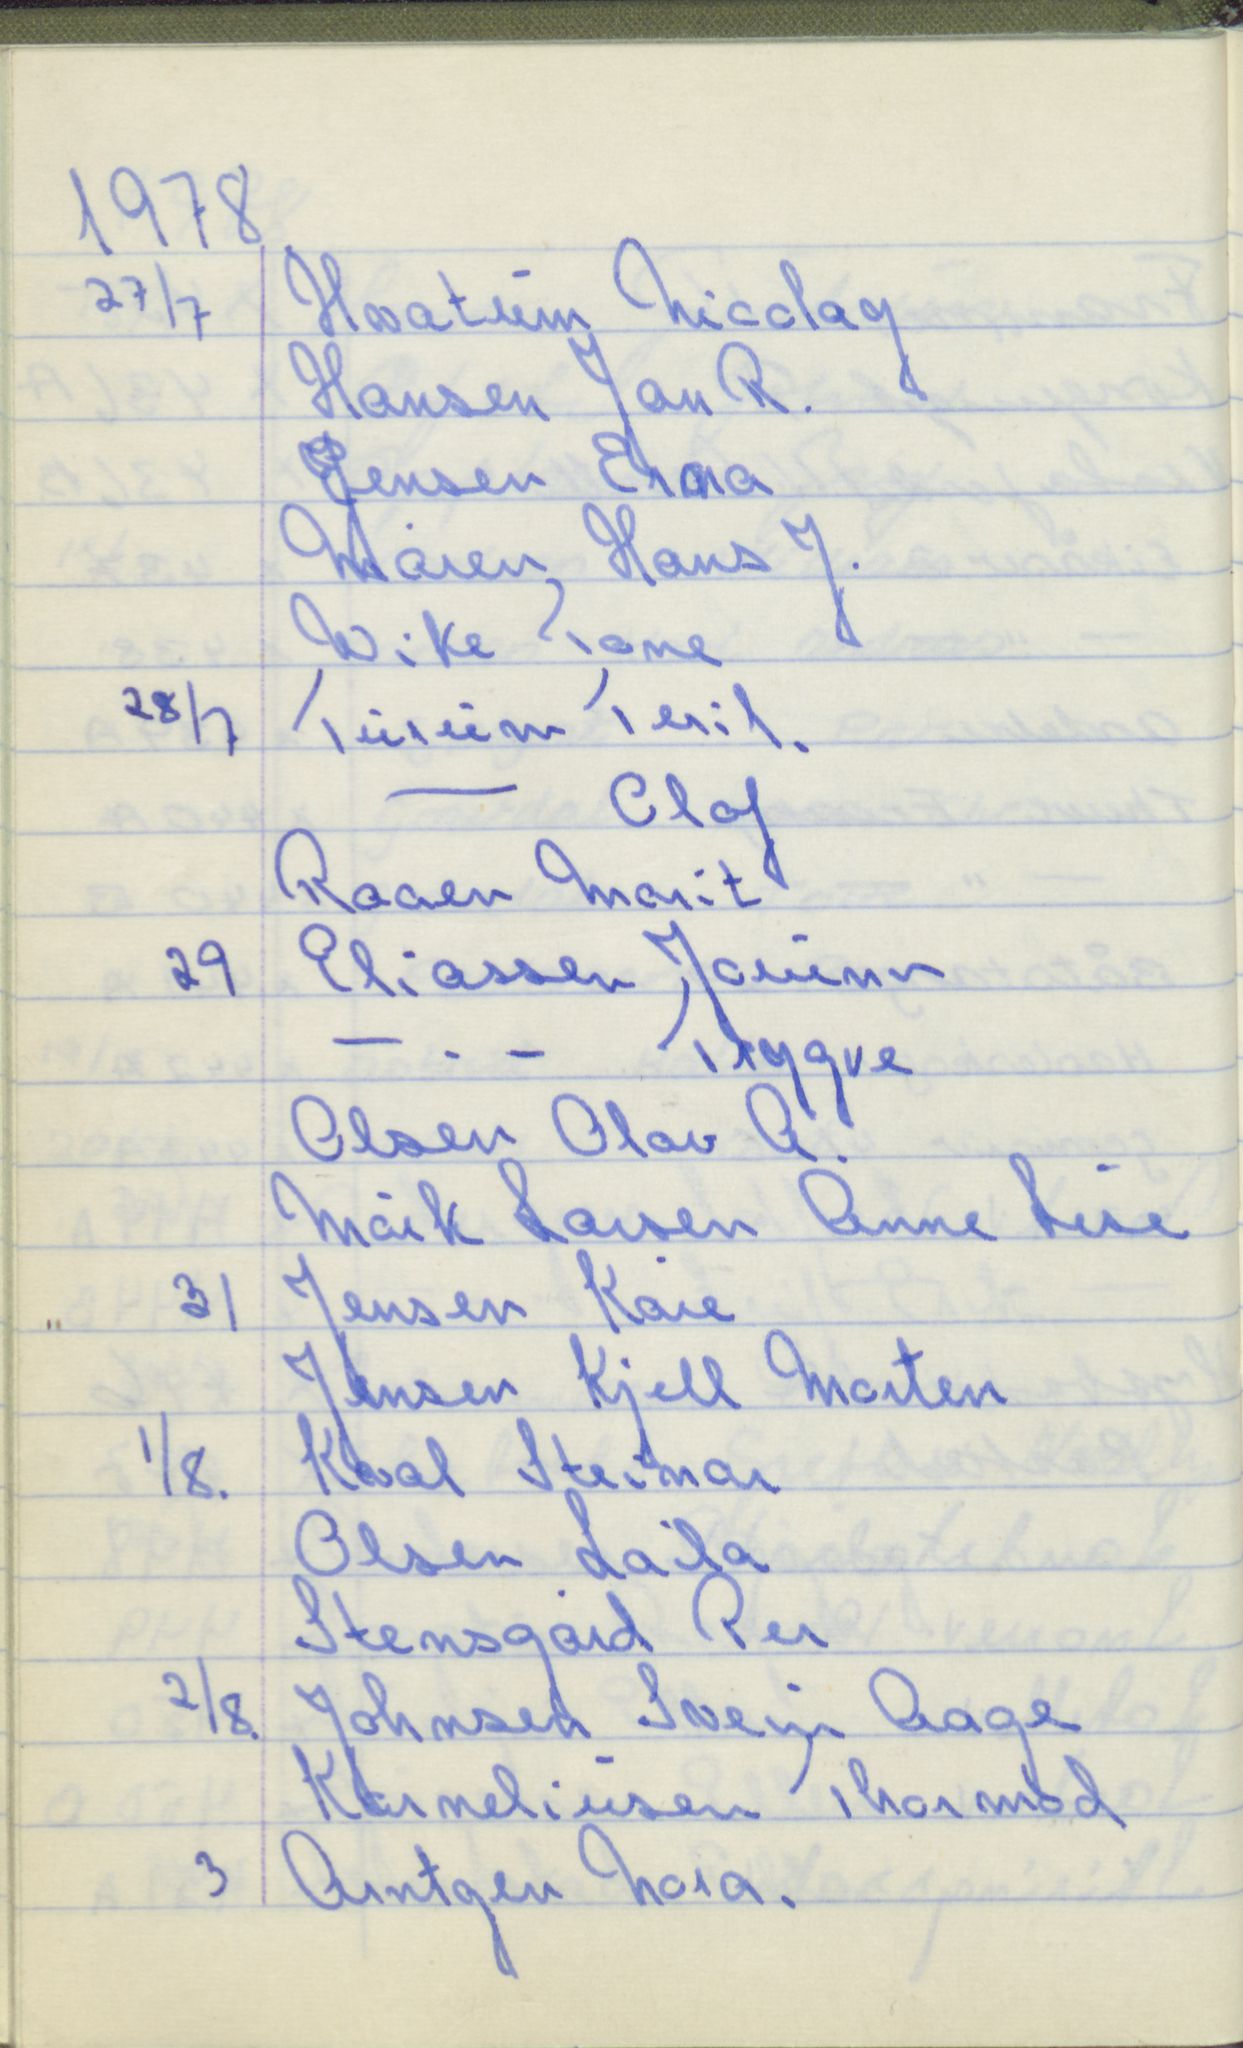 1978
27/7 Hvatum Nicolay
Hansen Jan R.
Jensen Erna
Maren, Hans J.
Wike Tone
28/7 Tuium Teril.
— Olof
Raaen Marit
29 Eliassen Jorunn
— . – Trygve
Olsen Olav A.
Mark Larsen Anne Lise
31 Jensen Kåre
Jensen Kjell Morten
1/8. Kval Steinar
Olsen Laila
Stensgård Per
2/8. Johnsen Svein Aage
Korneliusen Thormod
3 Arntgen Nora.